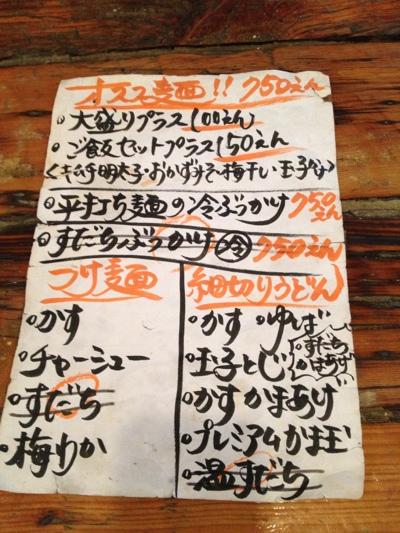 オススメ麺!! 750えん
・大盛りプラス100えん
・ご飯セットプラス150えん
<キムチ・明太子・おかずみそ・梅干し・玉子
・平打ち麺の冷ぶっかけ 750えん
・すだちぶっかけ 冷 750えん
つけ麺
・かす
・チャーシュー
・すだち
・梅わか
細切りうどん
・かす ・ゆば
・玉子とじ
・かすかまあげ
・プレミアムかま玉
・温すだち